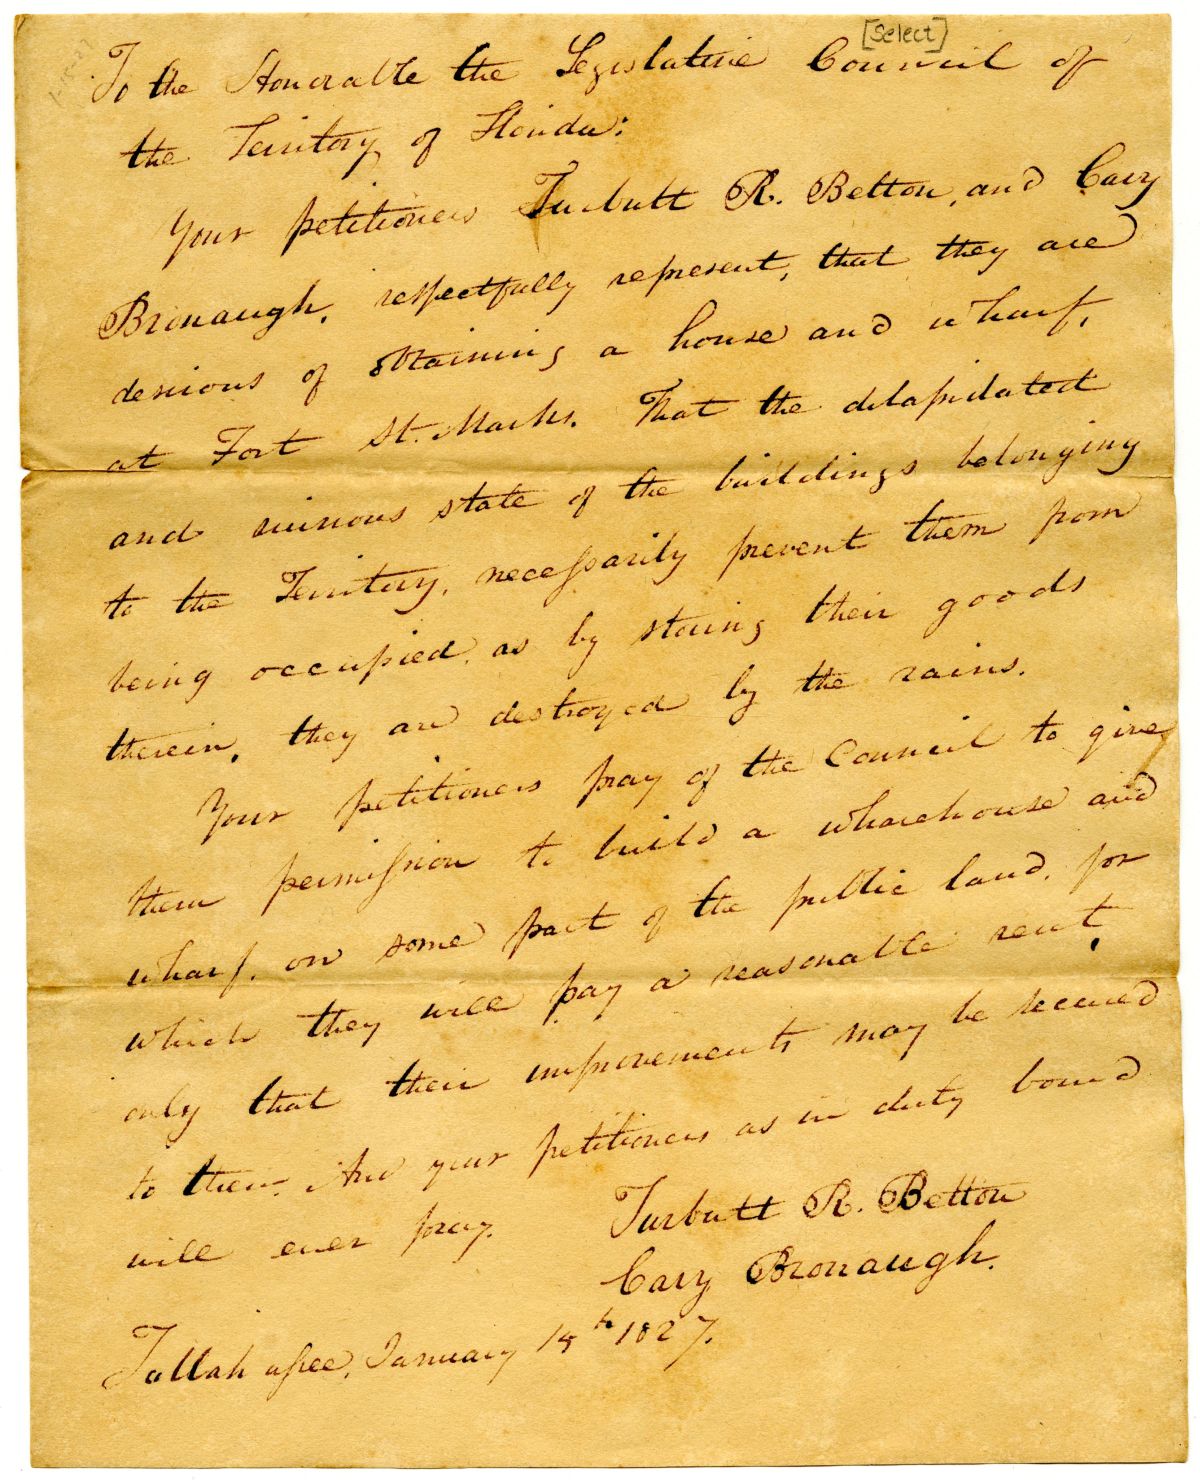 [Select]
To the Honorable the Legislative Council of
the Territory of Florida:
Your petitioners Turbutt R. Betton, and Cary
Bronaugh, respectfully represent, that they are
desirous of obtaining a house and wharf,
at Fort St. Marks. That the delapidated
and ruinous state of the buildings belonging
to the Territory, necessarily prevent them from
being occupied, as by storing their goods
therein, they are destroyed by the rains.
Your petitioners pray of the Council to give
them permission to build a wharehouse and
wharf, on some part of the public land, for
which they will pay a reasonable rent,
only that their improvements may be secured
to them. And your petitioners as in duty bound
will ever pray.
Turbutt R. Betton
Cary Bronaugh.
Tallahassee, January 15th 1827.